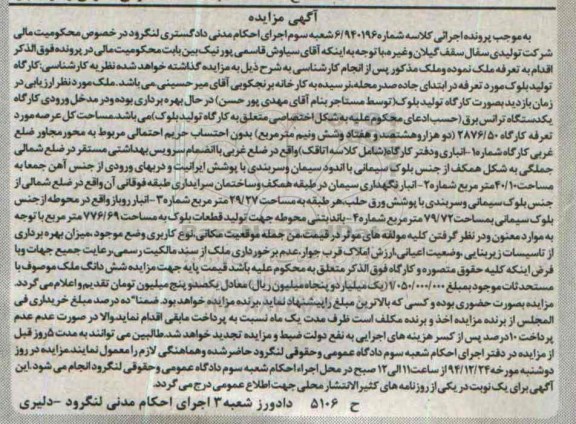 آگهی مزایده
به موجب پرونده اجرائی کلاسه شماره ۶/۹۴۰۱۹۶ شعبه سوم اجرای احکام مدنی دادگستری لنگرود در خصوص محکومیت مالی
شرکت تولیدی سفال سقف گیلان وغیره، با توجه به اینکه آقای سیاوش قاسمی پور تیک بین بابت محکومیت مالی در پرونده فوق الذکر
اقدام به تعرفه ملک نموده وملک مذکور پس از انجام کارشناسی به شرح ذیل به مزایده گذاشته خواهد شده نظریه کارشناسی: کارگاه
تولید بلوک مورد تعرفه در ابتدای جاده صدر محله، نرسیده به کارخانه برنجکوبی آقای میرحسینی می باشد. ملک مورد نظر ارزیابی در
زمان بازدید بصورت کارگاه تولید بلوک (توسط مستاجر بنام آقای مهدی پور حسن) در حال بهره برداری بوده و در مدخل ورودی کارگاه
یکدستگاه ترانس برق (حسب ادعای محکوم علیه به شکل اختصاصی متعلق به کارگاه تولید بلوک) می باشد. مساحت کل عرصه مورد
تعرفه کارگاه ۲۸۷۶/۵۰ (دو هزار وهشتصد و هفتاد وشش ونیم متر مربع) بدون احتساب حریم احتمالی مربوط به محور مجاور ضلع
غربی کارگاه شماره ۱-انباری ودفتر کارگاه (شامل کلاسه اتاقک) واقع در ضلع غربی با انضمام سرویس بهداشتی مستقر در ضلع شمالی
جملگی به شکل همکف از جنس بلوک سیمانی با اندود سیمان وسربندی با پوشش ایرانیت و دربهای ورودی از جنس آهن جمعا به
مساحت ۴۰/۱۰ متر مربع شماره ۲- انبار نگهداری سیمان در طبقه همکف وساختمان سرایداری طبقه فوقانی آن واقع در ضلع شمالی از
جنس بلوک سیمانی وسربندی با پوشش ورق حلب، هر طبقه به مساحت ۲۹/۲۷ متر مربع شماره ۳- انبار روباز واقع در محوطه از جنس
بلوک سیمانی بمساحت ۷۹/۷۲ متر مربع شماره ۴- باند بتنی محوطه جهت تولید قطعات بلوک به مساحت ۷۷۶/۶۹ متر مربع با توجه
به موارد معنون ودر نظر گرفتن کلیه مولفه های موثر در قیمت، من جمله موقعیت مکانی، نوع کاربری وضع موجود، میزان بهره برداری
از تاسیسات زیربنایی، وضعیت اعیانی، ارزش املاک قرب جوار، عدم برخورداری ملک از سند مالکیت رسمی، رعایت جمیع جهات وبا
فرض اینکه کلیه حقوق متصوره و کارگاه فوق الذکر متعلق به محکوم علیه باشد قیمت پایه جهت مزایده شش دانگ ملک موصوف با
مستحدثات موجود بمبلغ ۱/۰۵۰/۰۰۰/۰۰۰ (یک میلیارد و پنجاه میلیون ریال) معادل یکصد و پنج میلیون تومان تقدیم و اعلام می گردد.
مزایده بصورت حضوری بوده و کسی که بالاترین مبلغ را پیشنهاد نماید، برنده مزایده خواهد بود. ضمنا" ده درصد مبلغ خریداری فی
المجلس از برنده مزایده اخذ و برنده مکلف است ظرف مدت یک ماه نسبت به پرداخت مابقی اقدام نماید والا در صورت عدم عدم
پرداخت ۱۰ درصد پس از کسر هزینه های اجرایی به نفع دولت ضبط و مزایده تجدید خواهد شد. طالبین می توانند به مدت ۵ روز قبل
از مزایده در دفتر اجرای احکام شعبه سوم دادگاه عمومی و حقوقی لنگرود حاضر شده وهماهنگی لازم را معمول نمایند. مزایده در روز
دوشنبه مورخه ۹۴/۱۲/۲۴ از ساعت ۱۱ الی ۱۲ صبح در محل اجراء احکام شعبه سوم دادگاه عمومی و حقوقی لنگرود انجام می شود. این
آگهی برای یک نوبت در یکی از روزنامه های کثیرالانتشار محلی جهت اطلاع عمومی درج می گردد.
ح ۵۱۰۶ دادورز شعبه ۳ اجرای احکام مدنی لنگرود - دلیری